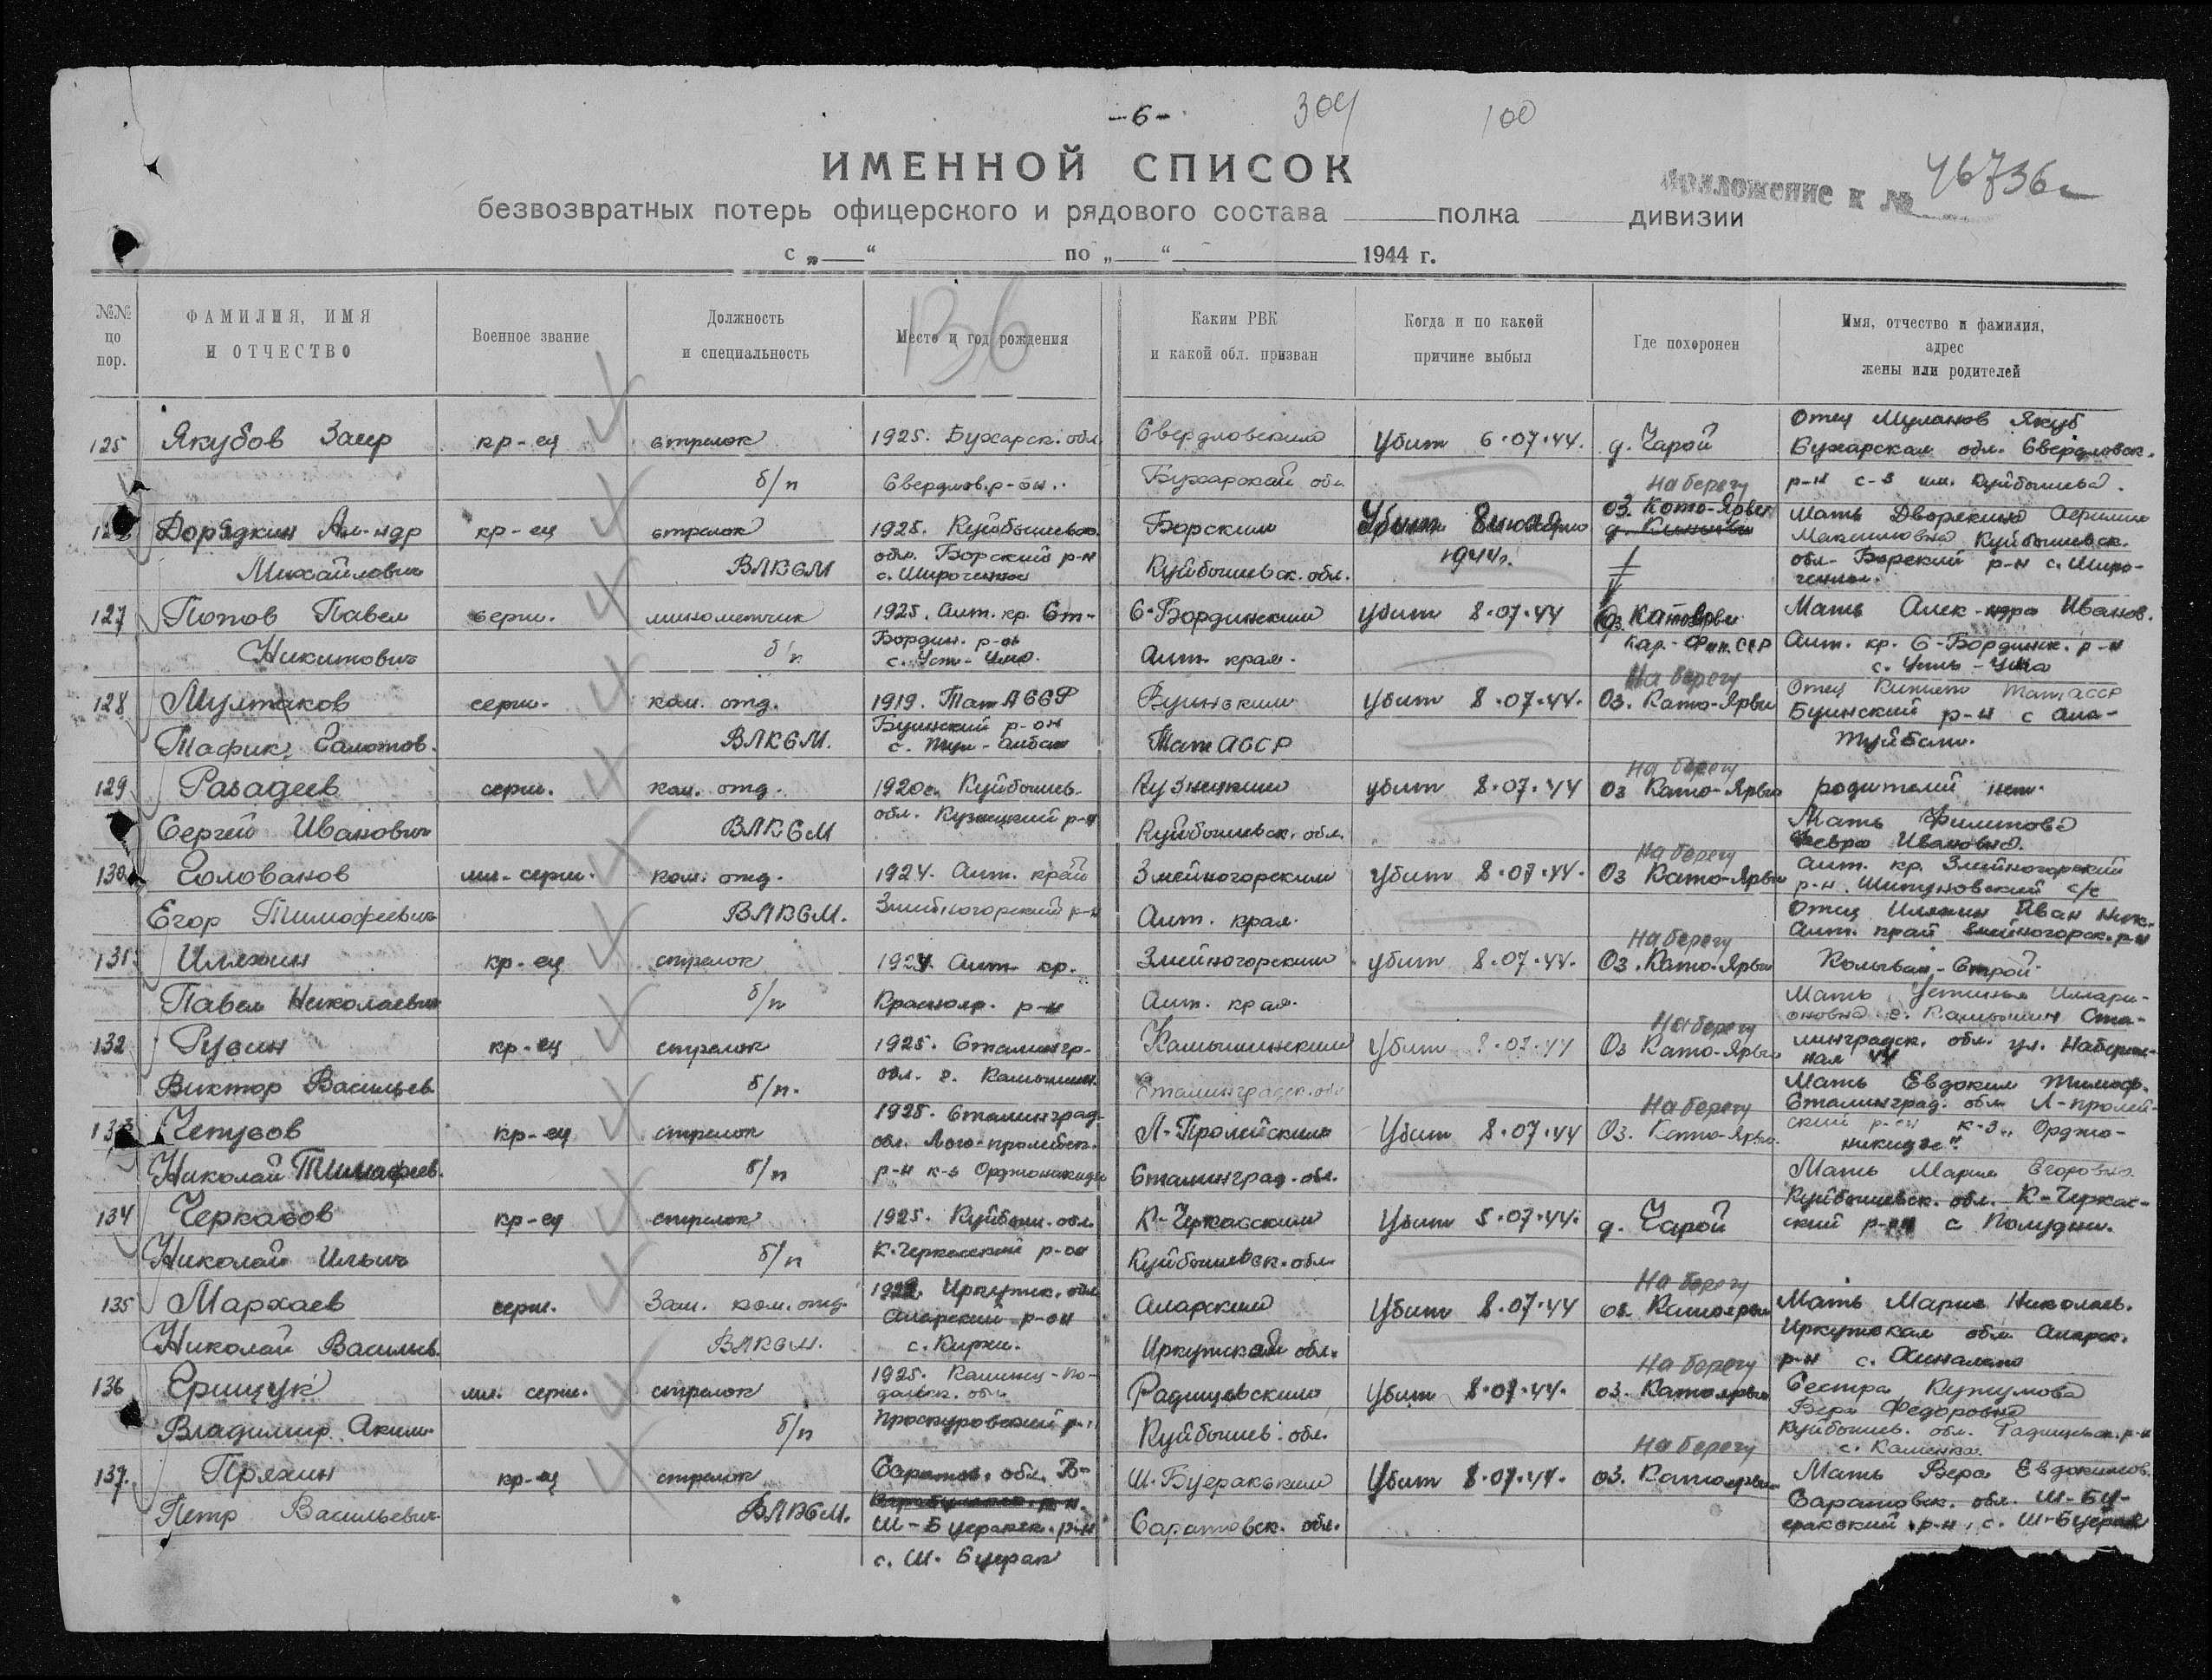 -6-
304
100
ИМЕННОЙ СПИСОК
Приложение к № 46736с
безвозвратных потерь офицерского и рядового состава полка дивизии
с „ “ по „ “ 1944 г.
136
№№ по пор.
ФАМИЛИЯ, ИМЯ И ОТЧЕСТВО
Военное звание
Должность и специальность
Место и год рождения
Каким РВК и какой обл. призван
Когда и по какой причине выбыл
Где похоронен
Имя, отчество и фамилия, адрес жены или родителей
125 Якубов Заир кр-ец стрелок 1925. Бухарск. обл. Свердловским Убит 6.07.44. д. Чарой Отец Якуб
Бухарская обл. Свердловск.
б/п Свердлов. р-он. Бухарской обл. р-н с-з им. Куйбышева.
На берегу
Дорядкин Ал-ндр кр-ец стрелок 1925. Куйбышевс. Борским Убит 8 июля оз. Като-Ярви Мать Дворякина
Максимовна Куйбышевск.
Михайлович ВЛКСМ обл. Борский р-н Куйбышевск. обл. 1944г. обл. Борский р-н с. Широ-
с. Широченка
127 Попов Павел серж. минометчик 1925. Алт. кр. Ст- С-Бардинским убит 8.07.44 Оз. Катоярви Мать Алек-ндра Иванов.
Никитович б/п Бардин. р-он Алт. края. Кар.-Фин. ССР Алт. кр. С-Бардинск. р-н
На берегу
128 Мултаков серж. ком. отд. 1919. Тат АССР Буинским убит 8.07.44. Оз. Като-Ярви Отец Тат АССР
Буинский р-он Буинский р-н с
Тафик ВЛКСМ. Тат АССР
На берегу
129 Разадеев серж. ком. отд. 1920г. Куйбышев. Кузнецким убит 8.07.44 Оз Като-Ярви родителей нет.
Сергей Иванович ВЛКСМ обл. Кузнецкий р-н Куйбышевск. обл.
Мать Филипова
Ивановна
На берегу
130 Голованов мл. серж. ком. отд. 1924. Алт. край Змеиногорским убит 8.07.44. Оз Като-Ярви Алт. кр. Змеиногорский
р-н. Шипуновский с/с
Егор Тимофеевич ВЛКСМ. Змеиногорский р-н Алт. края.
Отец Иляхин Иван Ник.
На берегу Алт. край Змеиногорск. р-н
131 Иляхин кр-ец стрелок 1924. Алт. кр. Змеиногорским убит 8.07.44. Оз. Като-Ярви Колыван-Строй
Павел Николаевич б/п Краснояр. р-н Алт. края.
Мать Устинья Иллари-
На берегу оновна г. Камышин Ста-
132 Русин кр-ец стрелок 1925. Сталингр- Камышинским Убит 8.07.44 Оз Като-Ярви линградск. обл. ул. Набереж-
ная 44
Виктор Васильев. б/п. обл. г. Камышин. Сталинградск. обл.
Мать Евдокия Тимоф.
На берегу Сталинград. обл. Л-пролей-
133 Чепусов кр-ец стрелок 1925. Сталинград- Л-Пролейским Убит 8.07.44 Оз. Като-Ярви ский р-он к-з „Орджо-
обл. Лого-пролейск. никидзе“
Николай Тимофеев. б/п р-н к-з Орджоникидзе Сталинград. обл.
Мать Мария Егоровна
Куйбышевск. обл. К-Черкас-
134 Черкасов кр-ец стрелок 1925. Куйбыш. обл. К-Черкасским Убит 5.07.44. д. Чарой ский р-он с Полудни.
Николай Ильич б/п К. Черкасский р-он Куйбышевск. обл.
На берегу
135 Мархаев серж. Зам. ком. отд. Иркутск. обл Аларским Убит 8.07.44 оз. Катоярви Мать Мария Николаев.
Аларский р-он Иркутская обл Аларск.
Николай Васильев. ВЛКСМ. с. Киркей. Иркутской обл. р-н с.
На берегу
136 Ерищук мл. серж. стрелок 1925. Каменец-По- Радищевским Убит 8.07.44. оз. Катоярви Сестра Кутумова
дольск. обл. Вера Федоровна
Владимир Аким. б/п Проскуровский р-н Куйбышев. обл. Куйбышев. обл. Радищевск. р-н
с. Каменка.
На берегу
137. Пряхин кр-ец стрелок Саратов. обл. В- Ш-Буеракским Убит 8.07.44. оз. Катоярви Мать Вера Евдокимов.
Петр Васильевич ВЛКСМ. Ш-Буеракск. р-н Саратовск. обл. Саратовск. обл. Ш-Бу-
с. Ш. Буерак еракский р-н, с. Ш-Буерак